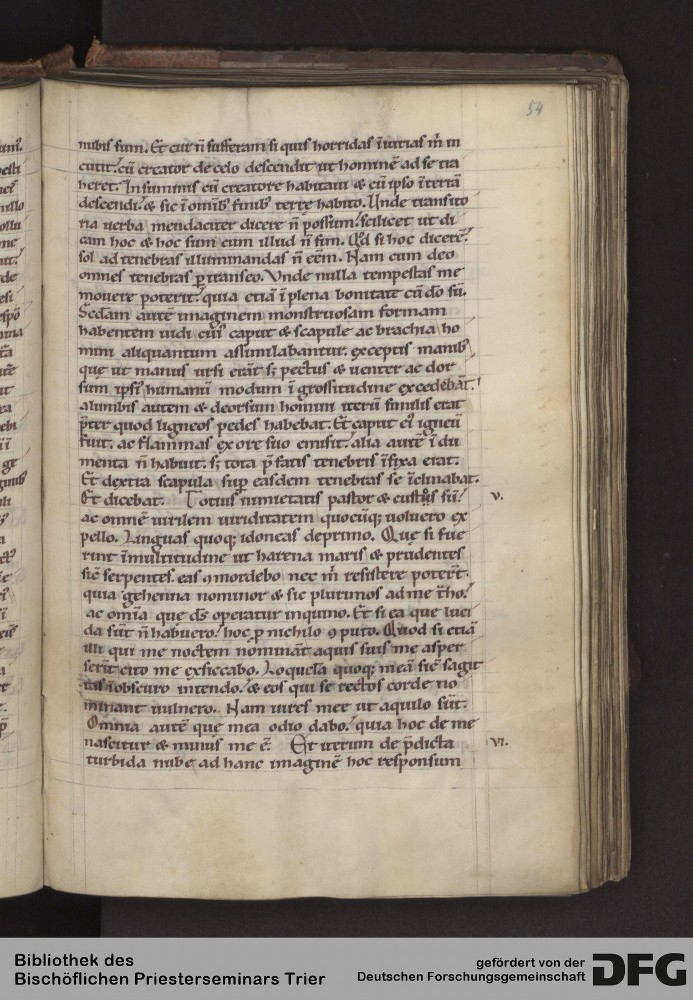 54
nubis sum. Et cur n̄ sufferam si quis horridas īiurias m̄ in
cutit? cū creator de celo descendit ut hominē ad se tra
heret. In summis cū creatore habitaui & cū ipso ī terrā
descendi. & sic ī omīb; finib; terre habito. Unde transito
ria uerba mendaciter dicere n̄ possum. scilicet ut di
cam hoc & hoc sum cum illud n̄ sim. Qd̄ si hoc dicerē.
sol ad tenebras illuminandas n̄ eēm. Nam cum deo
omnes tenebras ꝑtranseo. Vnde nulla tempestas me
mouere poterit. quia etiā ī plena bonitate cū dō sū.
Sedam autē imaginem monstruosam formam
habentem uidi cuiꝰ caput & scapule ac brachia ho
mini aliquantum assimilabantur. exceptis manib;
que ut manus ursi erāt s; pectus & uenter ac dor
sum ipsiꝰ humanū modum ī grossitudine excedebāt.
alumbis autem & deorsum homini iterū similis erat
p̄ter quod ligneos pedes habebat. Et caput eiꝰ igneū
fuit. ac flammas ex ore suo emisit. alia autē ī du
menta n̄ habuit. s; tota p̄fatis tenebris īfixa erat.
Et dextra scapula sup̄ easdem tenebras se īclinabat.
Et dicebat. Totius nimietatis pastor & custos sū. v.
ac omnē uirilem uiriditatem quocūq; uoluero ex
pello. Linguas quoq; idoneas deprimo. Que si fue
rint īmultitudine ut harena maris & prudentes
sic̄ serpentes. eas ꝯmordebo nec m̄ resistere poterīt.
quia gehenna nominor & sic plurimos ad me t̄ho.
ac om̄ia que ds̄ operatur inquino. Et si ea que luci
da sūt n̄ habuero. hoc ꝓ nichilo ꝯputo. Quod si etiā
illi qui me noctem nomināt aquis suis me asper
serīt cito me exsiccabo. Loquela quoq; meā sic̄ sagit
tas ī obscuro intendo. & eos qui se rectos corde no
minant uulnero. Nam uires mee ut aquilo sūt.
Omnia autē que mea odio dabo. quia hoc de me
nascitur & munus me ē. Et iterum de p̄dicta vi.
turbida nube ad hanc imaginē hoc responsum
Bibliothek des
Bischöflichen Priesterseminars Trier
gefördert von der
Deutschen Forschungsgemeinschaft
DFG